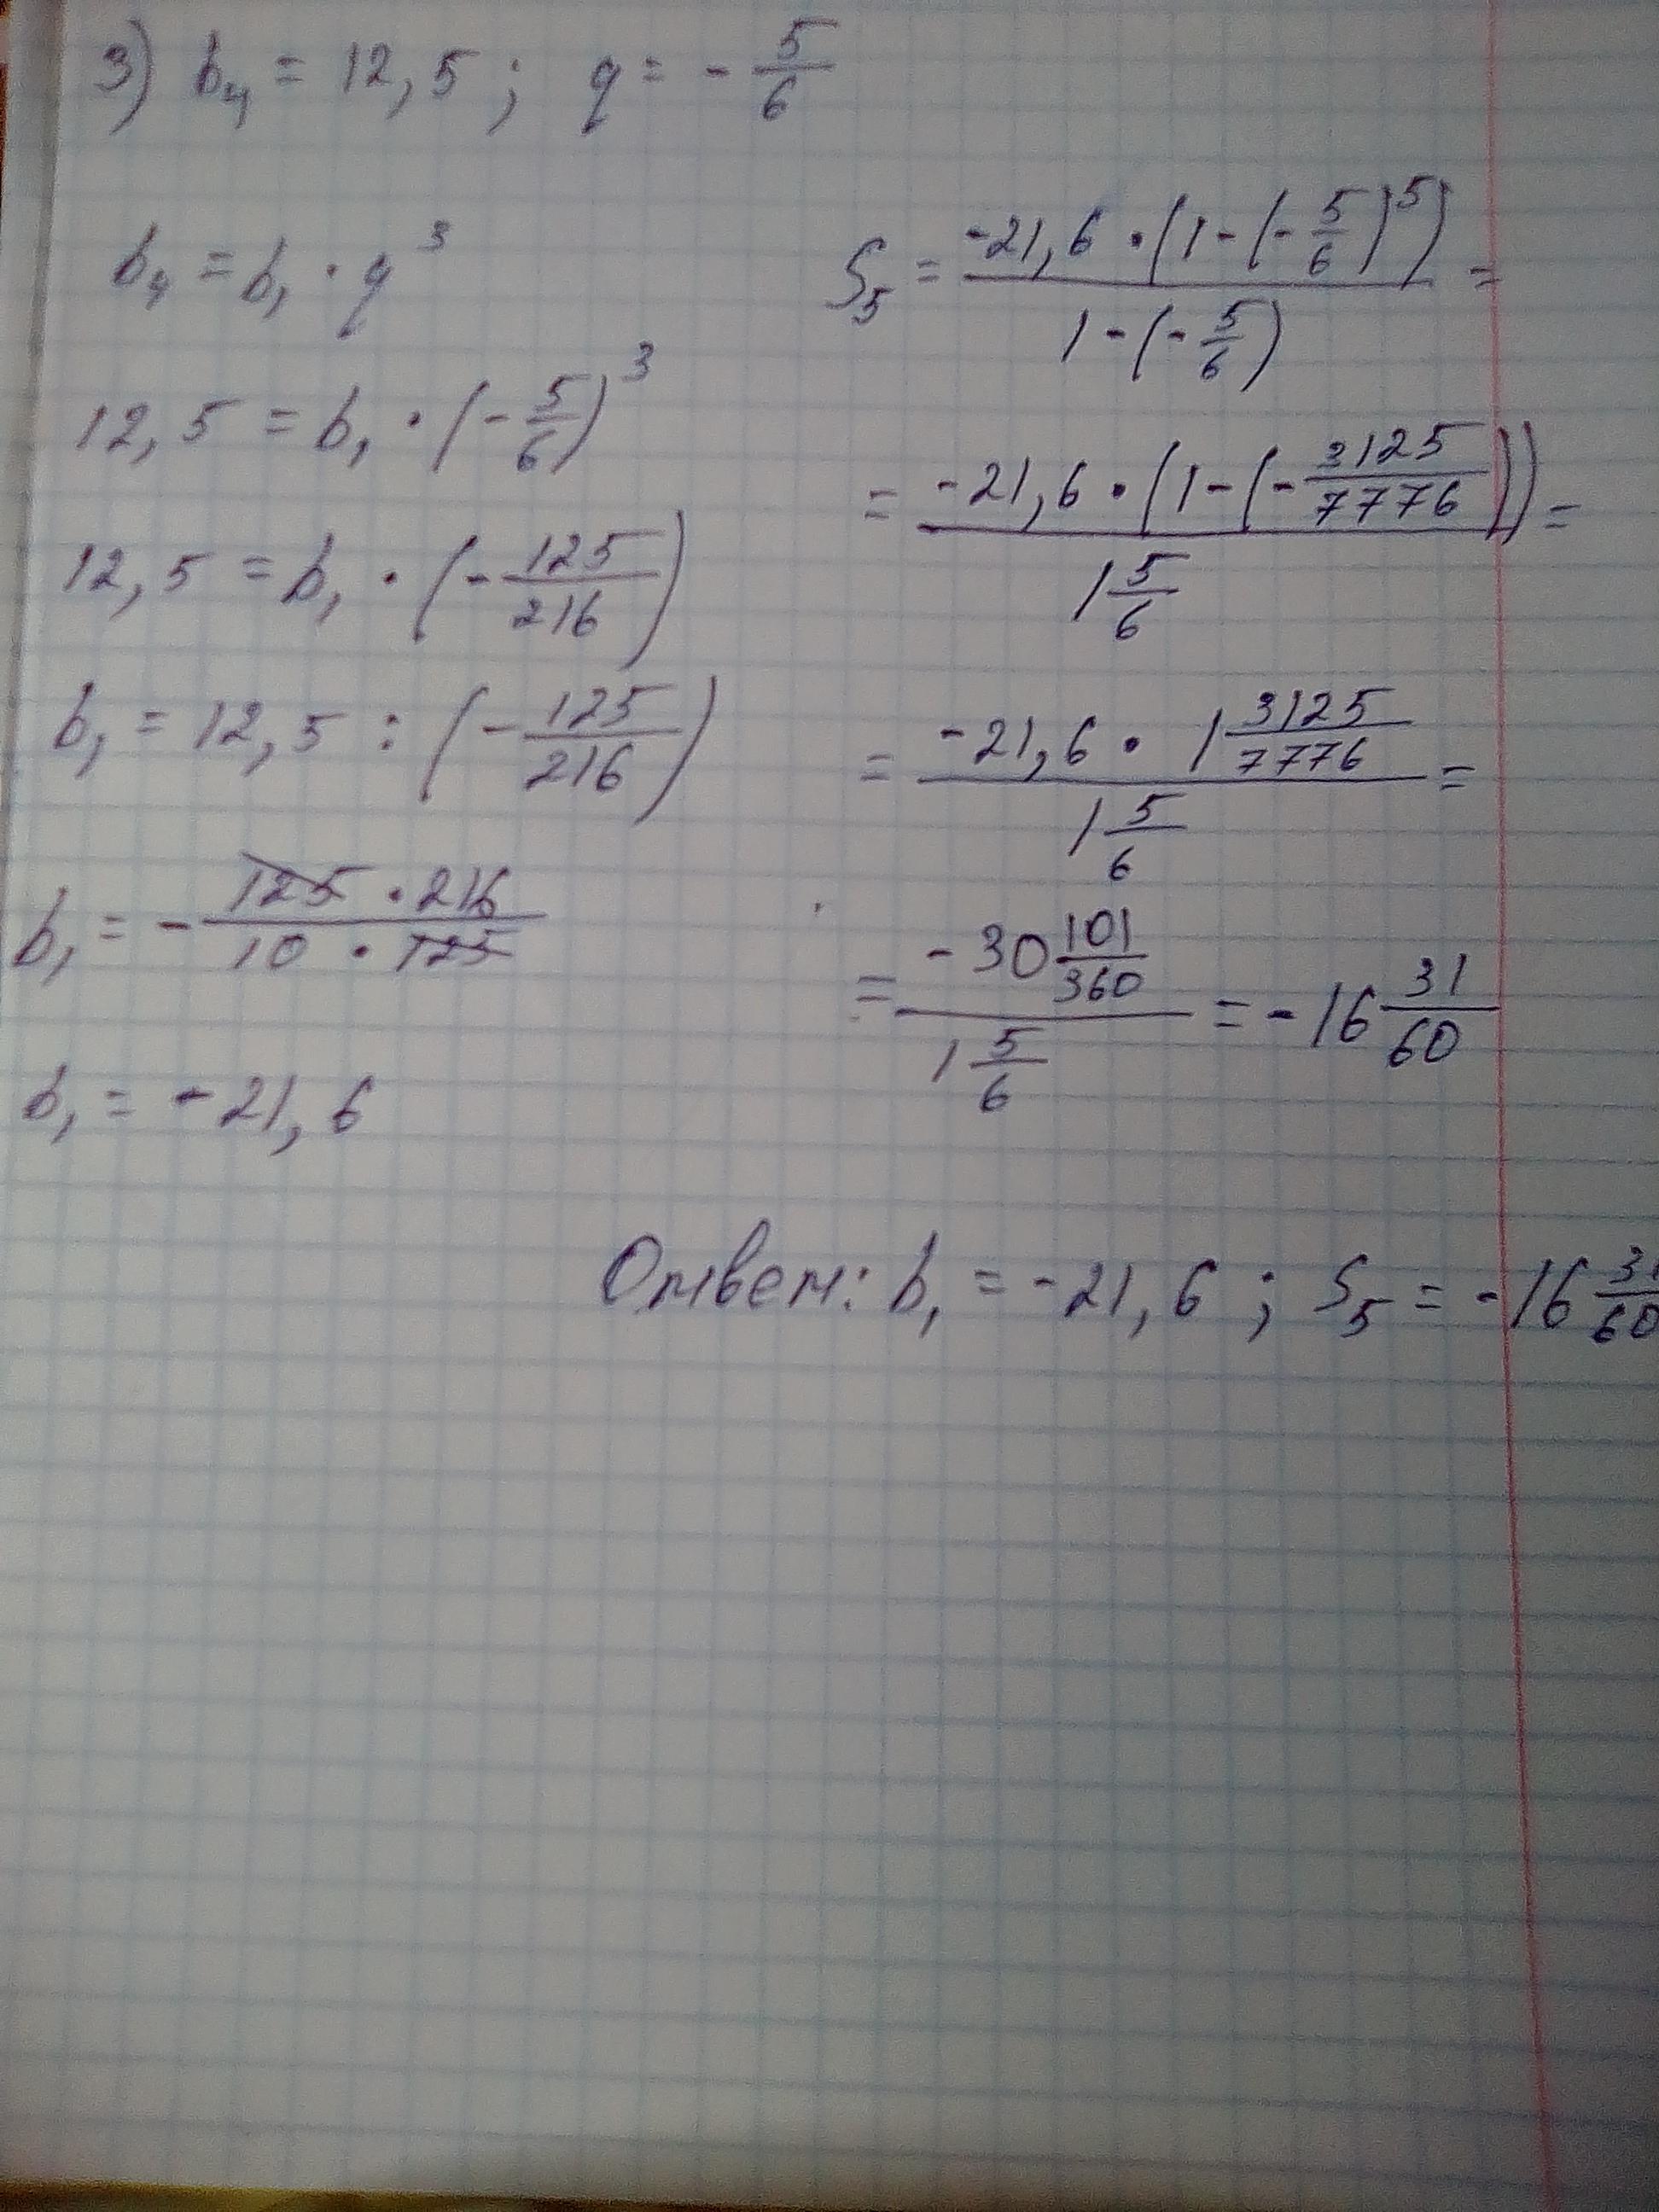 3) b₄ = 12,5; q = -5/6
b₄ = b₁ · q³
12,5 = b₁ · (-5/6)³
12,5 = b₁ · (-125/216)
b₁ = 12,5 : (-125/216)
b₁ = - 125 · 216 / 10 · 125
b₁ = -21,6
S₅ = -21,6 · (1-(-5/6)⁵) / 1-(-5/6) =
= -21,6 · (1-(-3125/7776)) / 1 5/6 =
= -21,6 · 1 3125/7776 / 1 5/6 =
= -30 101/360 / 1 5/6 = -16 31/60
Ответ: b₁ = -21,6; S₅ = -16 31/60